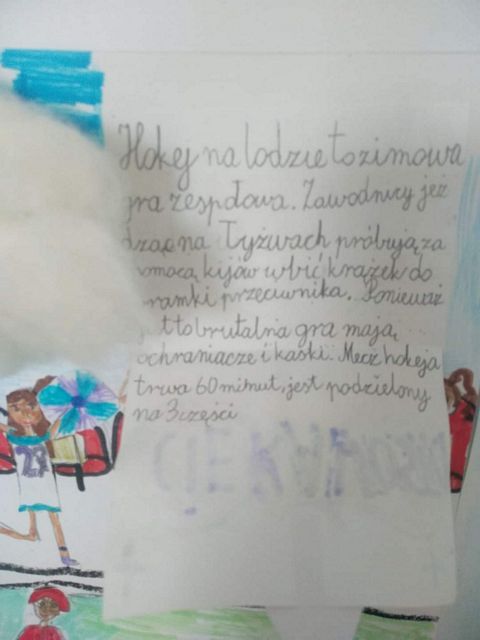 Hokej na lodzie to zimowa
gra zespołowa. Zawodnicy jeż
dżąc na Łyżwach próbują za
pomocą kijów wbić krążek do
bramki przeciwnika. Ponieważ
jest to brutalna gra mają
ochraniacze i kaski. Mecz hokeja
trwa 60 minut, jest podzielony
na 3 części
27